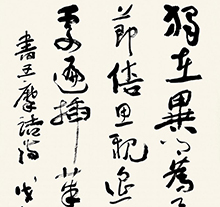 獨在異鄉為
節倍思親遙
處遍插茱
書王摩詰詩戊